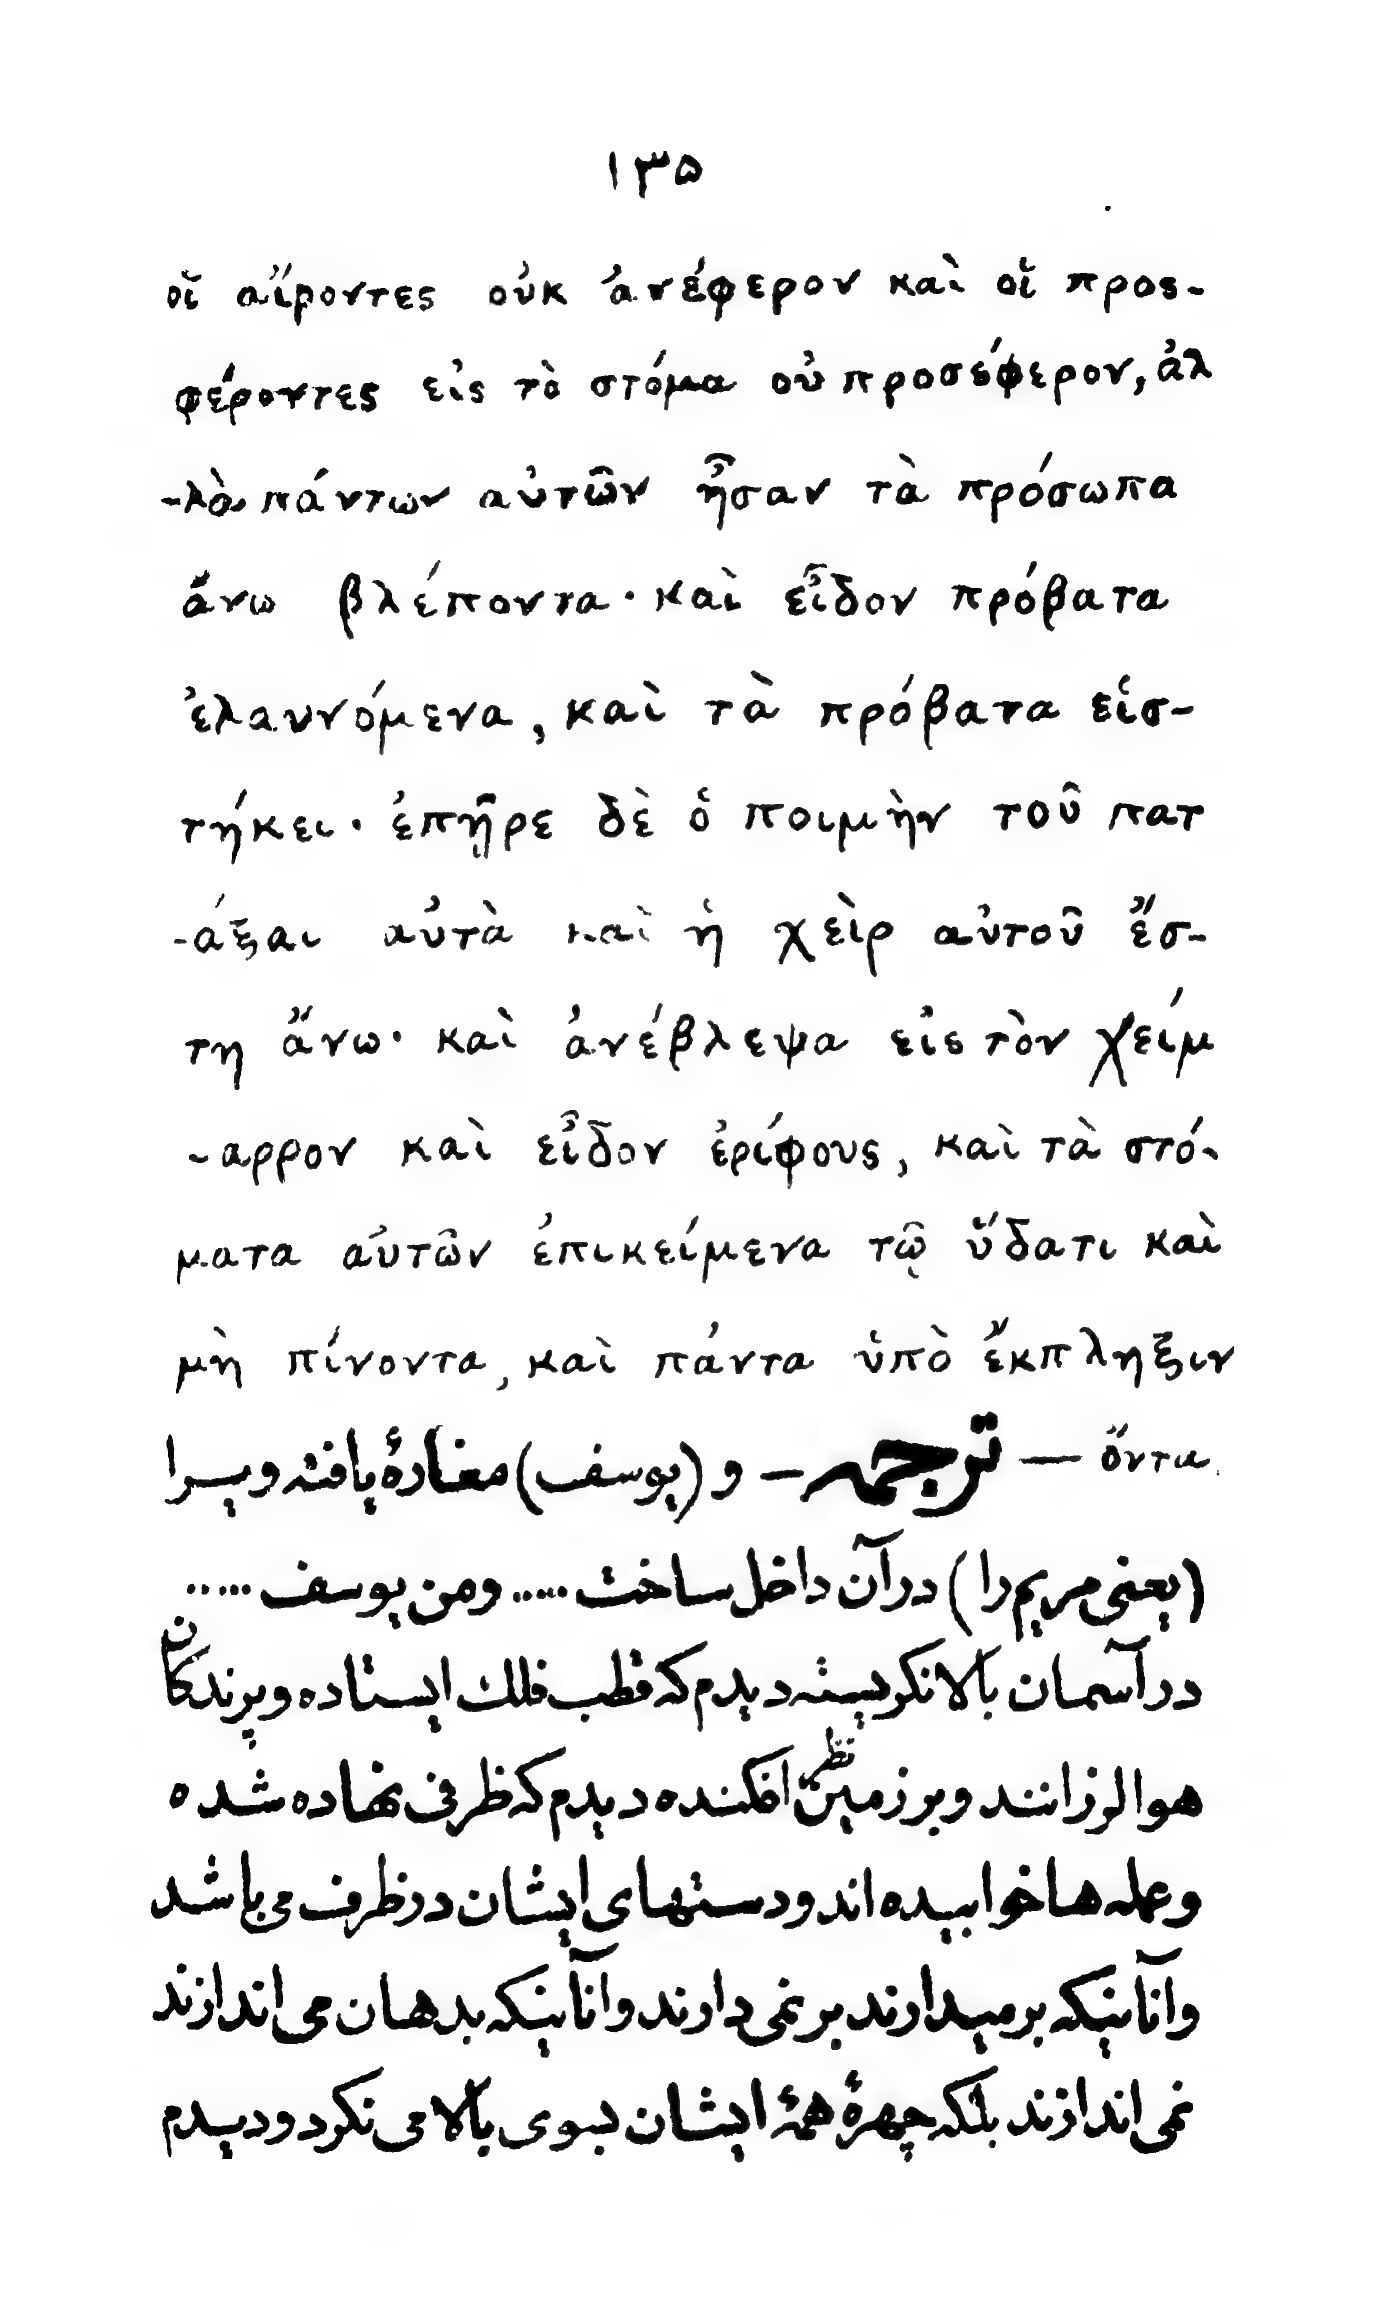 ۱۳۵
οἵ αἴροντες οὐκ ἀνέφερον καὶ οἵ προς-
φέροντες εἰς τὸ στόμα οὐ προσέφερον, ἀλ
-λὰ πάντων αὐτῶν ἦσαν τὰ πρόσωπα
ἄνω βλέποντα· καὶ εἶδον πρόβατα
ἐλαυνόμενα, καὶ τὰ πρόβατα εἱσ-
τήκει· ἐπῇρε δὲ ὁ ποιμὴν τοῦ πατ
-άξαι αὐτὰ καὶ ἡ χεὶρ αὐτοῦ ἔσ-
τη ἄνω· καὶ ἀνέβλεψα εἰς τὸν χείμ
-αρρον καὶ εἶδον ἐρίφους, καὶ τὰ στό-
ματα αὐτῶν ἐπικείμενα τῷ ὕδατι καὶ
μὴ πίνοντα, καὶ πάντα ὑπὸ ἔκπληξιν
ὄντα — ترجمه — و (یوسف) مغارهٔ یافته ویرا
(یعنی مریم را) در آن داخل ساخت ..... ومن یوسف .....
در آسمان بالا نکریسته دیدم که قطب فلك ایستاده وپرندکان
هوا لرزانند وبر زمین نظر افکنده دیدم که ظرفی نهاده شده
وعمله ها خوابیده اند ودستهای ایشان در ظرف می باشد
وآنانیکه بر میدارند بر نمی دارند وآنانیکه بدهان می اندازند
نمی اندازند بلکه چهرهٔ همهٔ ایشان بسوی بالا می نکرد ودیدم